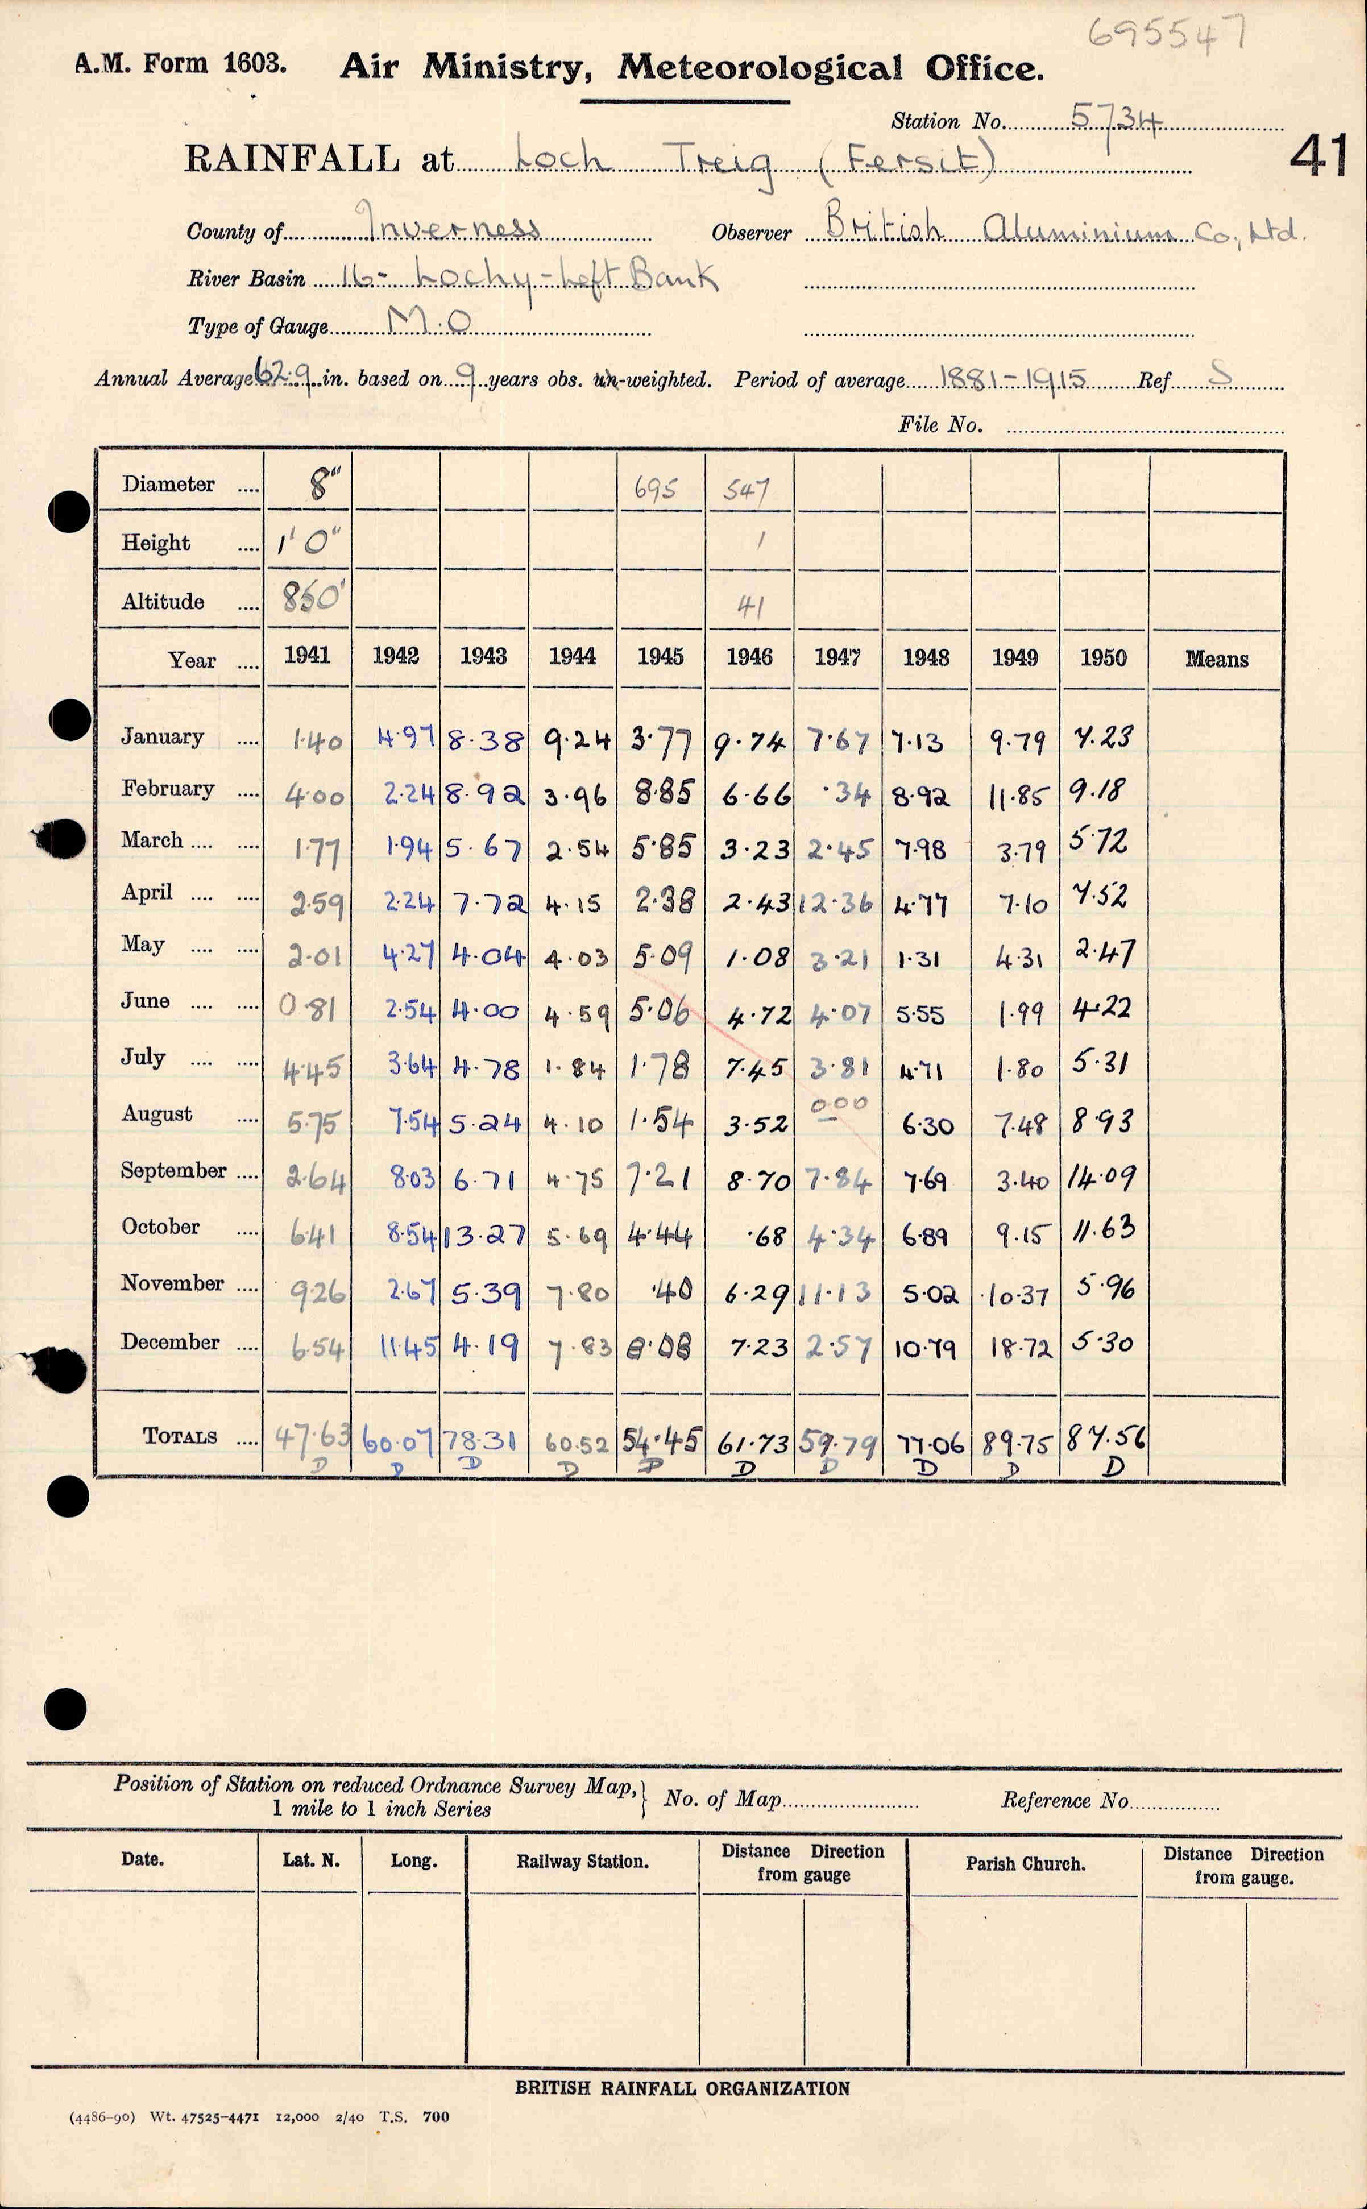 695547
A.M. Form 1603. Air Ministry, Meteorological Office.
Station No. 5734
41
RAINFALL at Loch Treig (Fersit)
County of Inverness Observer British Aluminium Co., Ltd.
River Basin 16- Lochy-Left Bank
Type of Gauge M.O
Annual Average 62.9 in. based on 9 years obs. un-weighted. Period of average 1881-1915 Ref S
File No.
Diameter 8" 695 547
Height 1' 0" 1
Altitude 850' 41
Year 1941 1942 1943 1944 1945 1946 1947 1948 1949 1950 Means
January 1.40 4.97 8.38 9.24 3.77 9.74 7.67 7.13 9.79 7.23
February 4.00 2.24 8.92 3.96 8.85 6.66 .34 8.92 11.85 9.18
March 1.77 1.94 5.67 2.54 5.85 3.23 2.45 7.98 3.79 5.72
April 2.59 2.24 7.72 4.15 2.38 2.43 12.36 4.77 7.10 7.52
May 2.01 4.27 4.04 4.03 5.09 1.08 3.21 1.31 4.31 2.47
June 0.81 2.54 4.00 4.59 5.06 4.72 4.07 5.55 1.99 4.22
July 4.45 3.64 4.78 1.84 1.78 7.45 3.81 4.71 1.80 5.31
August 5.75 7.54 5.24 4.10 1.54 3.52 0.00 6.30 7.48 8.93
September 2.64 8.03 6.71 4.75 7.21 8.70 7.84 7.69 3.40 14.09
October 6.41 8.54 13.27 5.69 4.44 .68 4.34 6.89 9.15 11.63
November 9.26 2.67 5.39 7.80 .40 6.29 11.13 5.02 10.37 5.96
December 6.54 11.45 4.19 7.83 8.08 7.23 2.57 10.79 18.72 5.30
TOTALS 47.63 60.07 78.31 60.52 54.45 61.73 59.79 77.06 89.75 87.56
D D D D D D D D D D
Position of Station on reduced Ordnance Survey Map, No. of Map Reference No.
1 mile to 1 inch Series
Date. Lat. N. Long. Railway Station. Distance Direction from gauge Parish Church. Distance Direction from gauge.
BRITISH RAINFALL ORGANIZATION
(4486-90) Wt. 47525-4471 12,000 2/40 T.S. 700